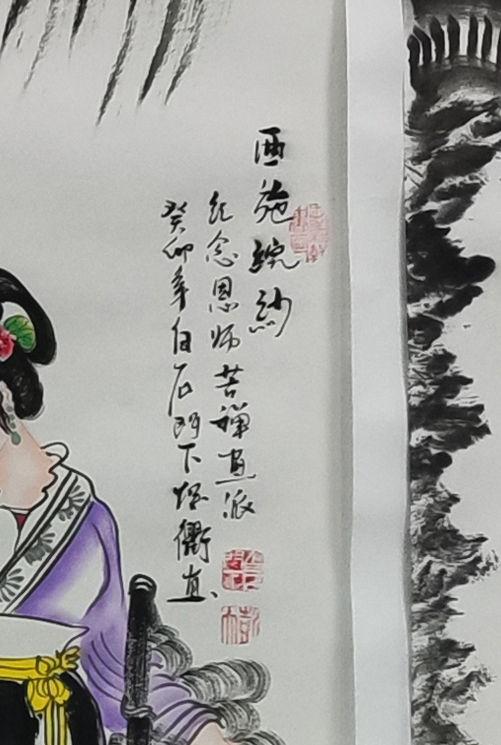 西施浣纱
纪念恩师苦禅画派
癸卯年白石门下 衢画